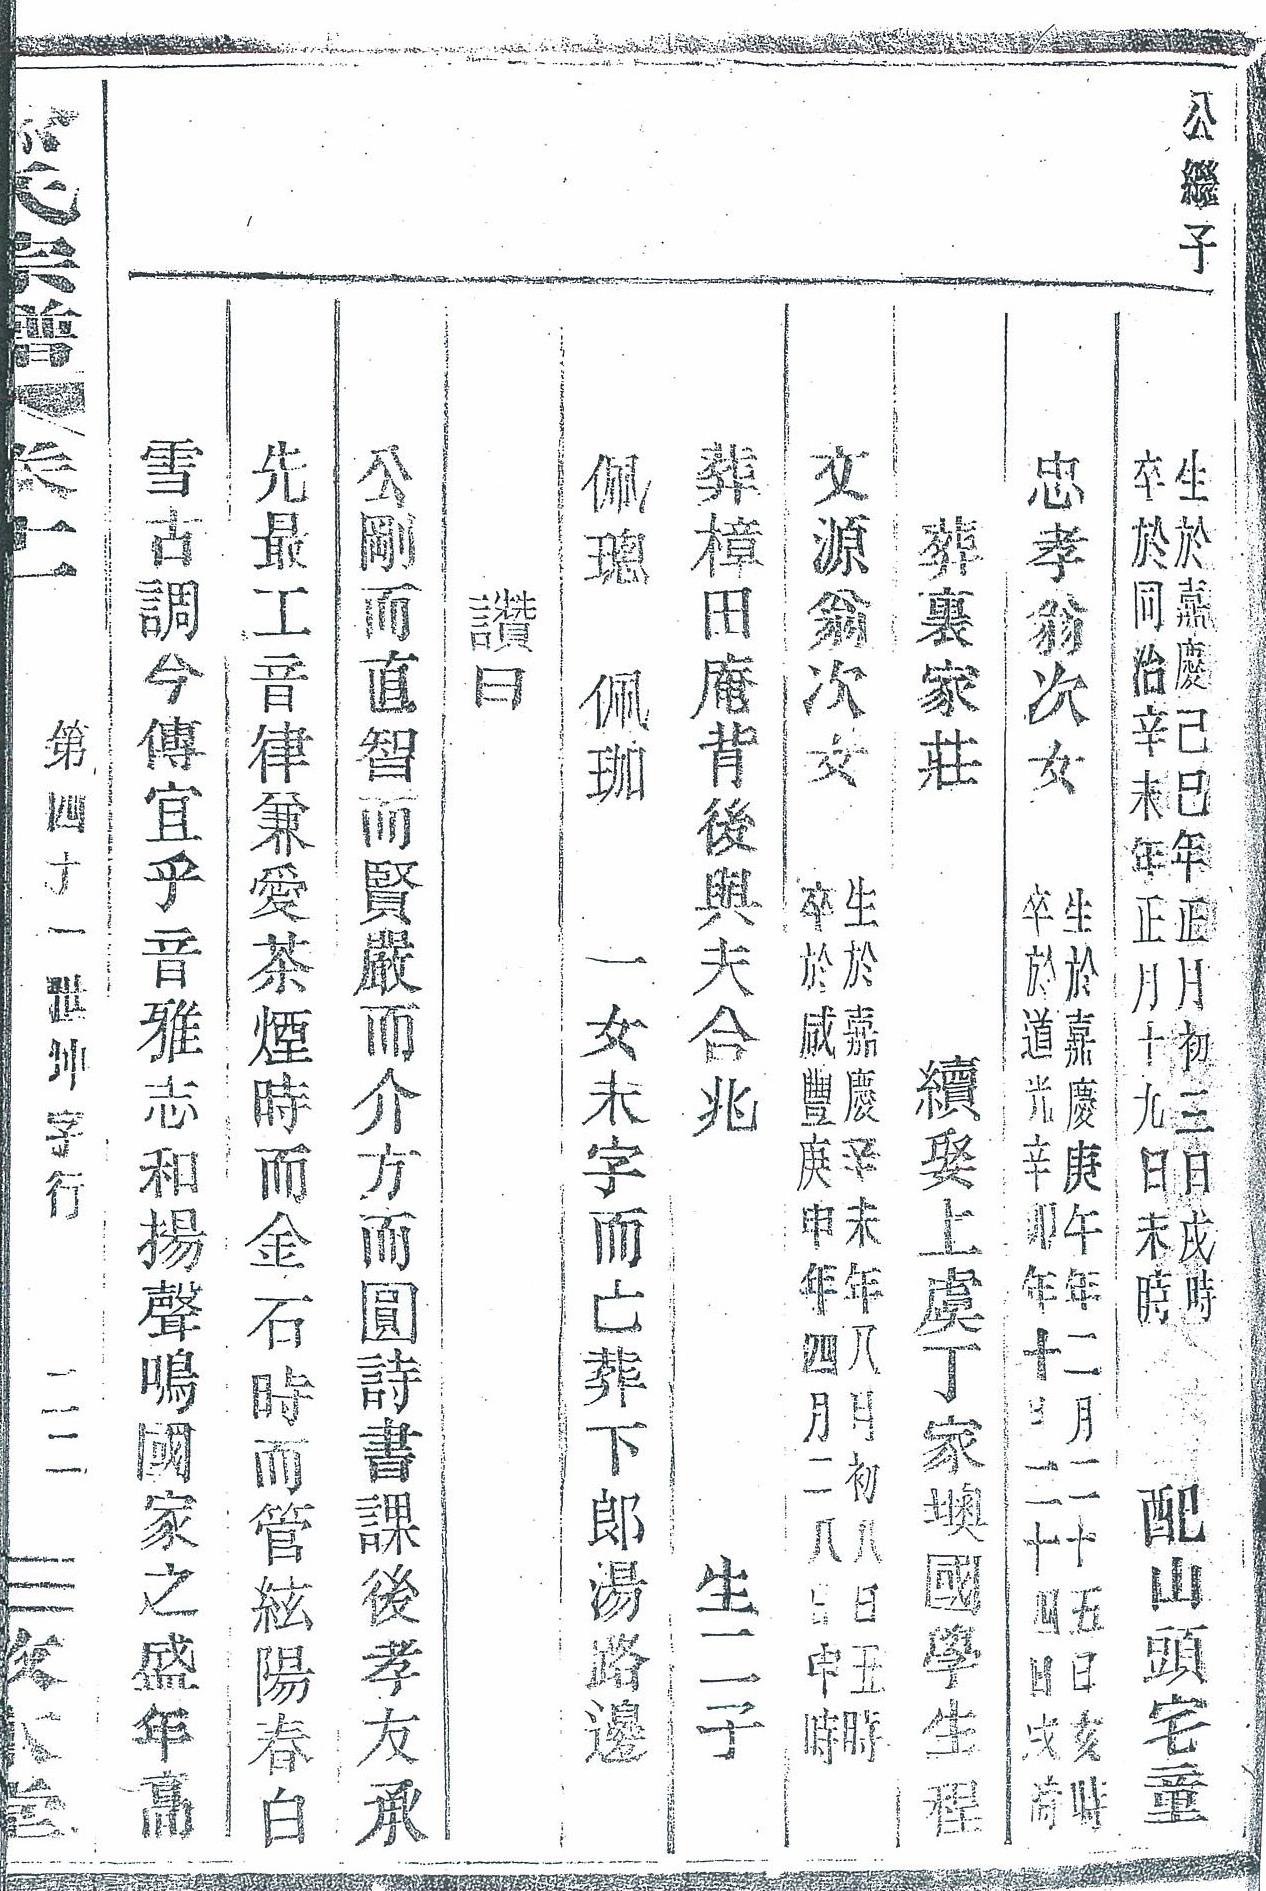 公繼子
生於嘉慶己巳年正月初三日戌時
卒於同治辛未年正月十九日未時
配山頭宅童
忠孝翁次女
生於嘉慶庚午年二月二十五日亥時
卒於道光辛卯年十月二十四日戌時
葬裏家莊 續娶上虞丁家塽國學生程
文源翁次女
生於嘉慶辛未年八月初八日丑時
卒於咸豐庚申年四月二八日申時
葬樟田庵背後與夫合兆 生二子
佩璁 佩珈 一女未字而亡葬下郎湯路邊
讚曰
公剛而直智而賢嚴而介方而圓詩書課後孝友承
先最工音律兼愛茶煙時而金石時而管絃陽春白
雪古調今傳宜乎音雅志和揚聲鳴國家之盛年高
氏宗譜 卷十 第四十一世坤字行